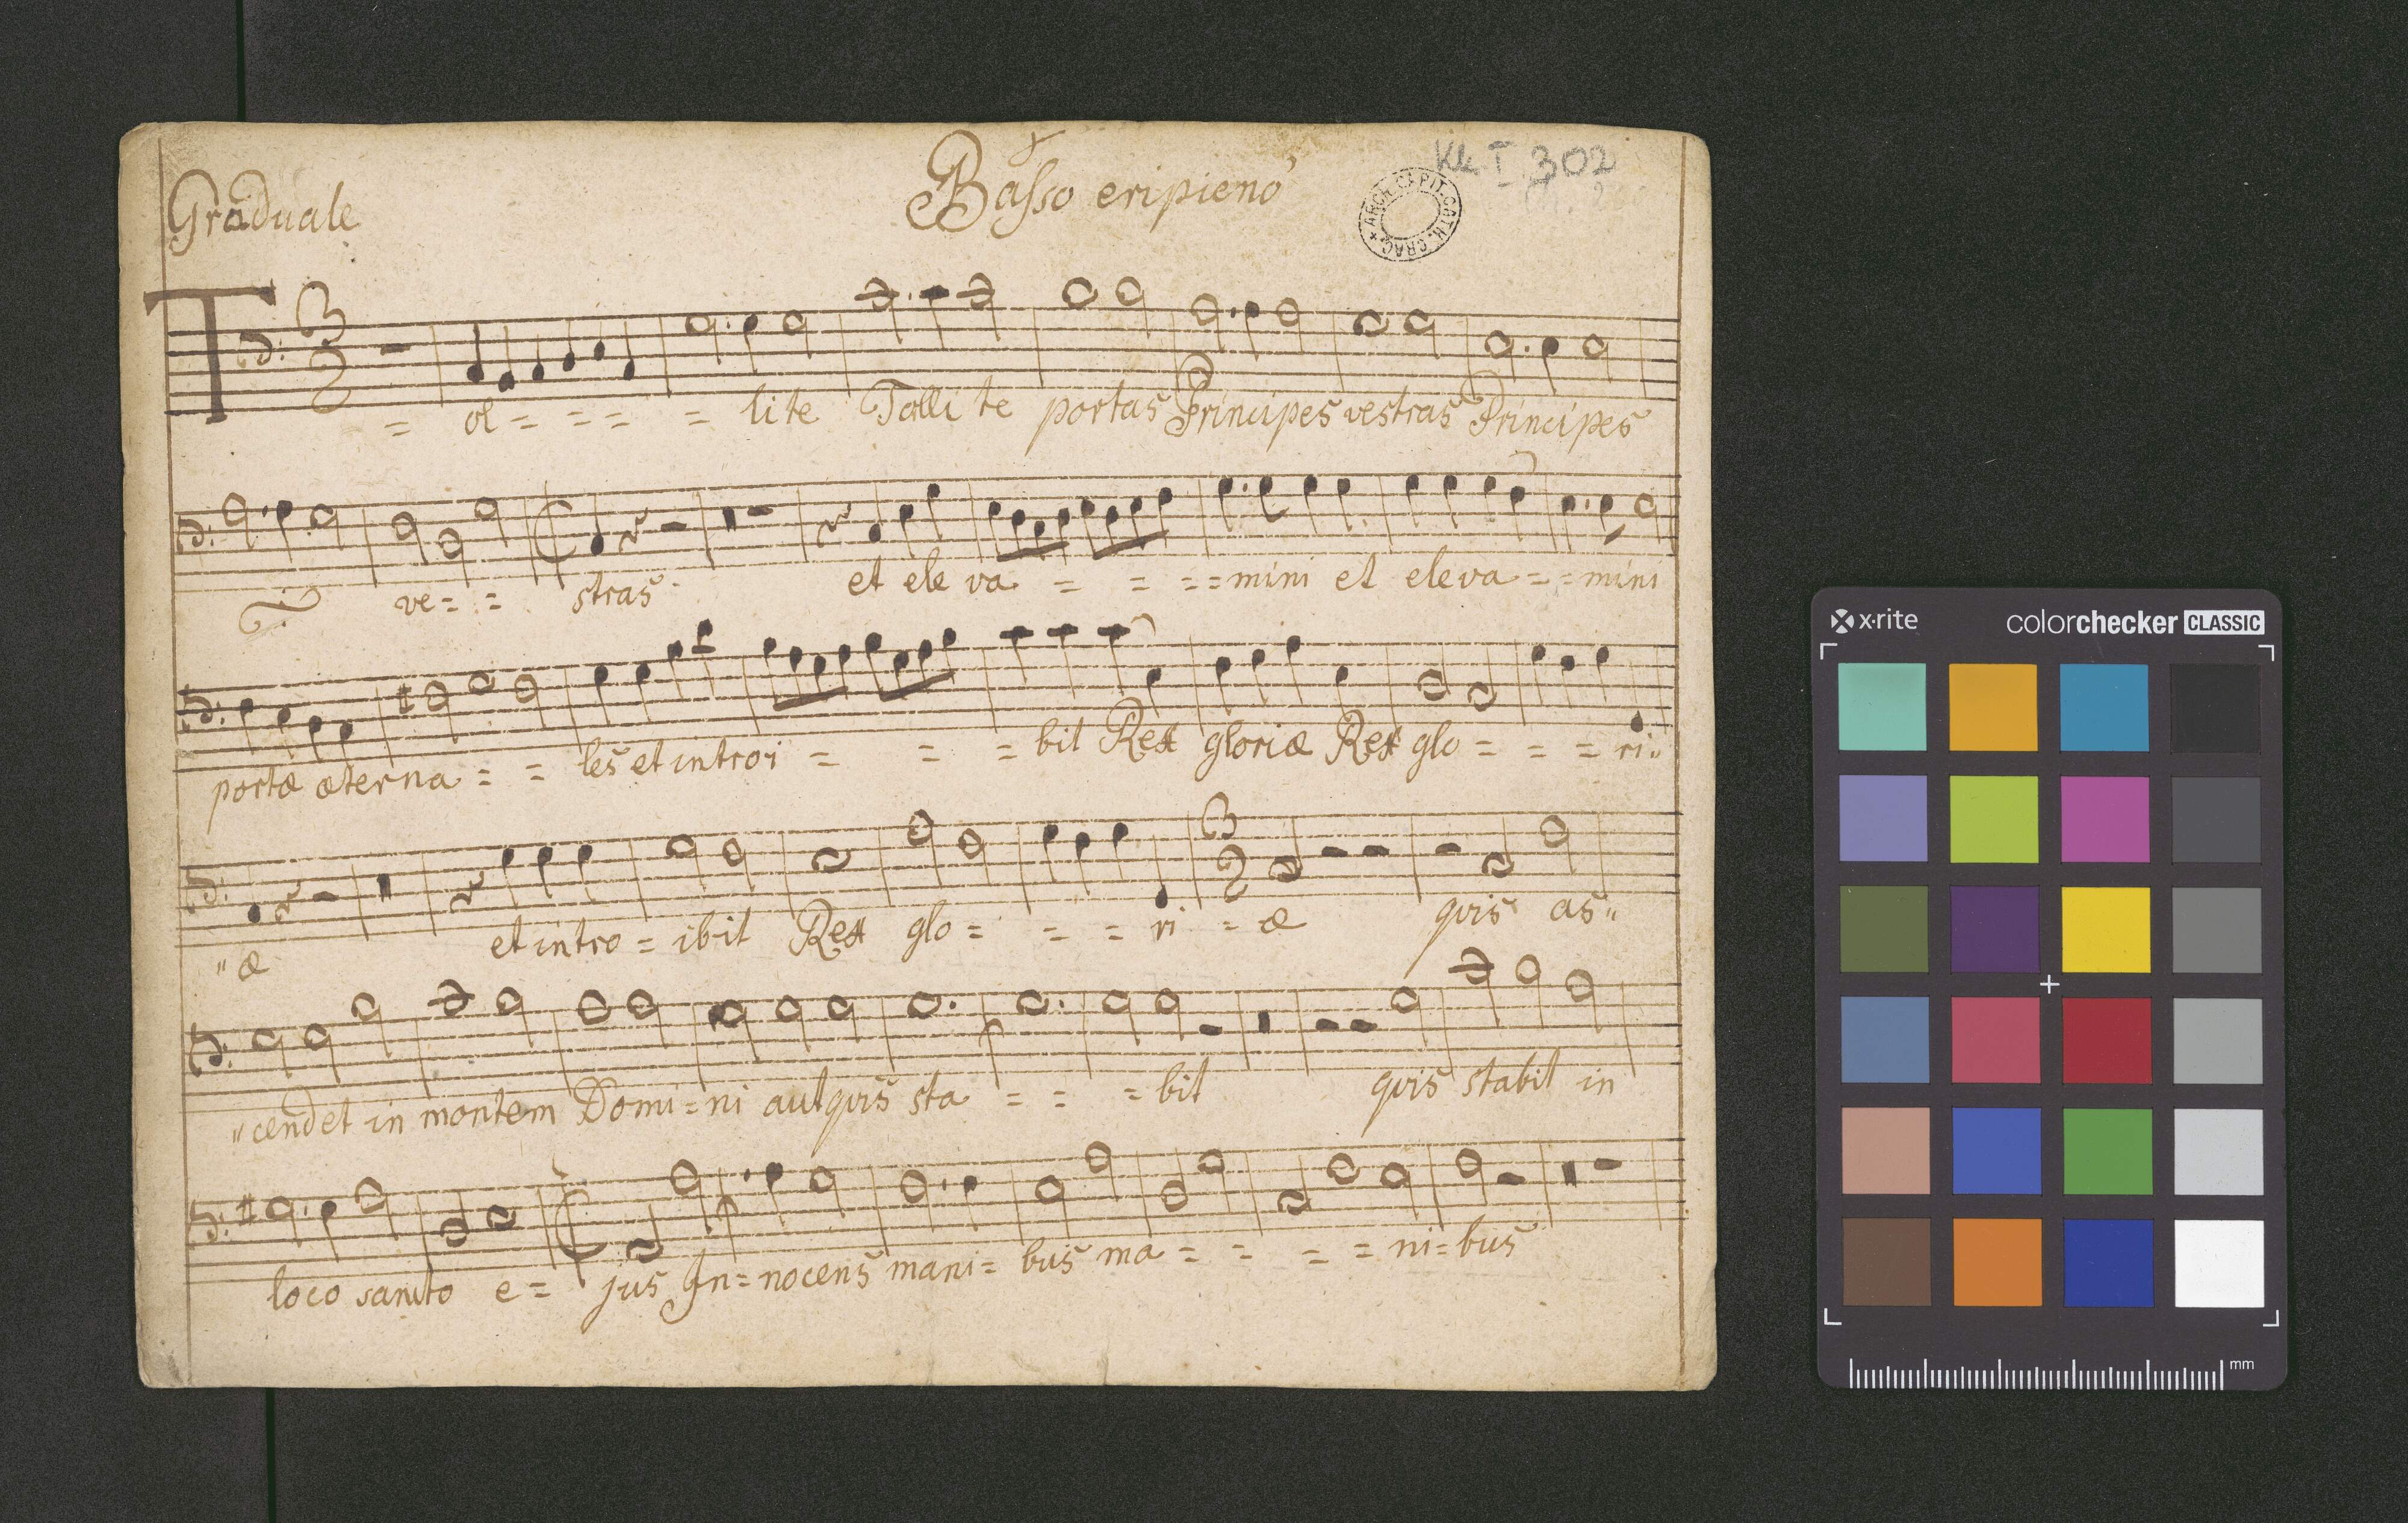 Graduale
Basso eripieno
KK. I. 302
ARCH. CAPIT. CATH. CRAC.
T = ol = = = = lite Tollite portas Principes vestras Principes
ve = = stras et ele va = = = = mini et eleva = = mini
portæ æterna = = les et introi = = = bit Rex gloriæ Rex glo = = = ri„
„æ et intro = ibit Rex glo = = = ri = æ quis as„
„cendet in montem Domi = ni aut quis sta = = = bit quis stabit in
loco sancto e = jus In = nocens mani = bus ma = = = = ni = bus
x·rite
colorchecker CLASSIC
mm